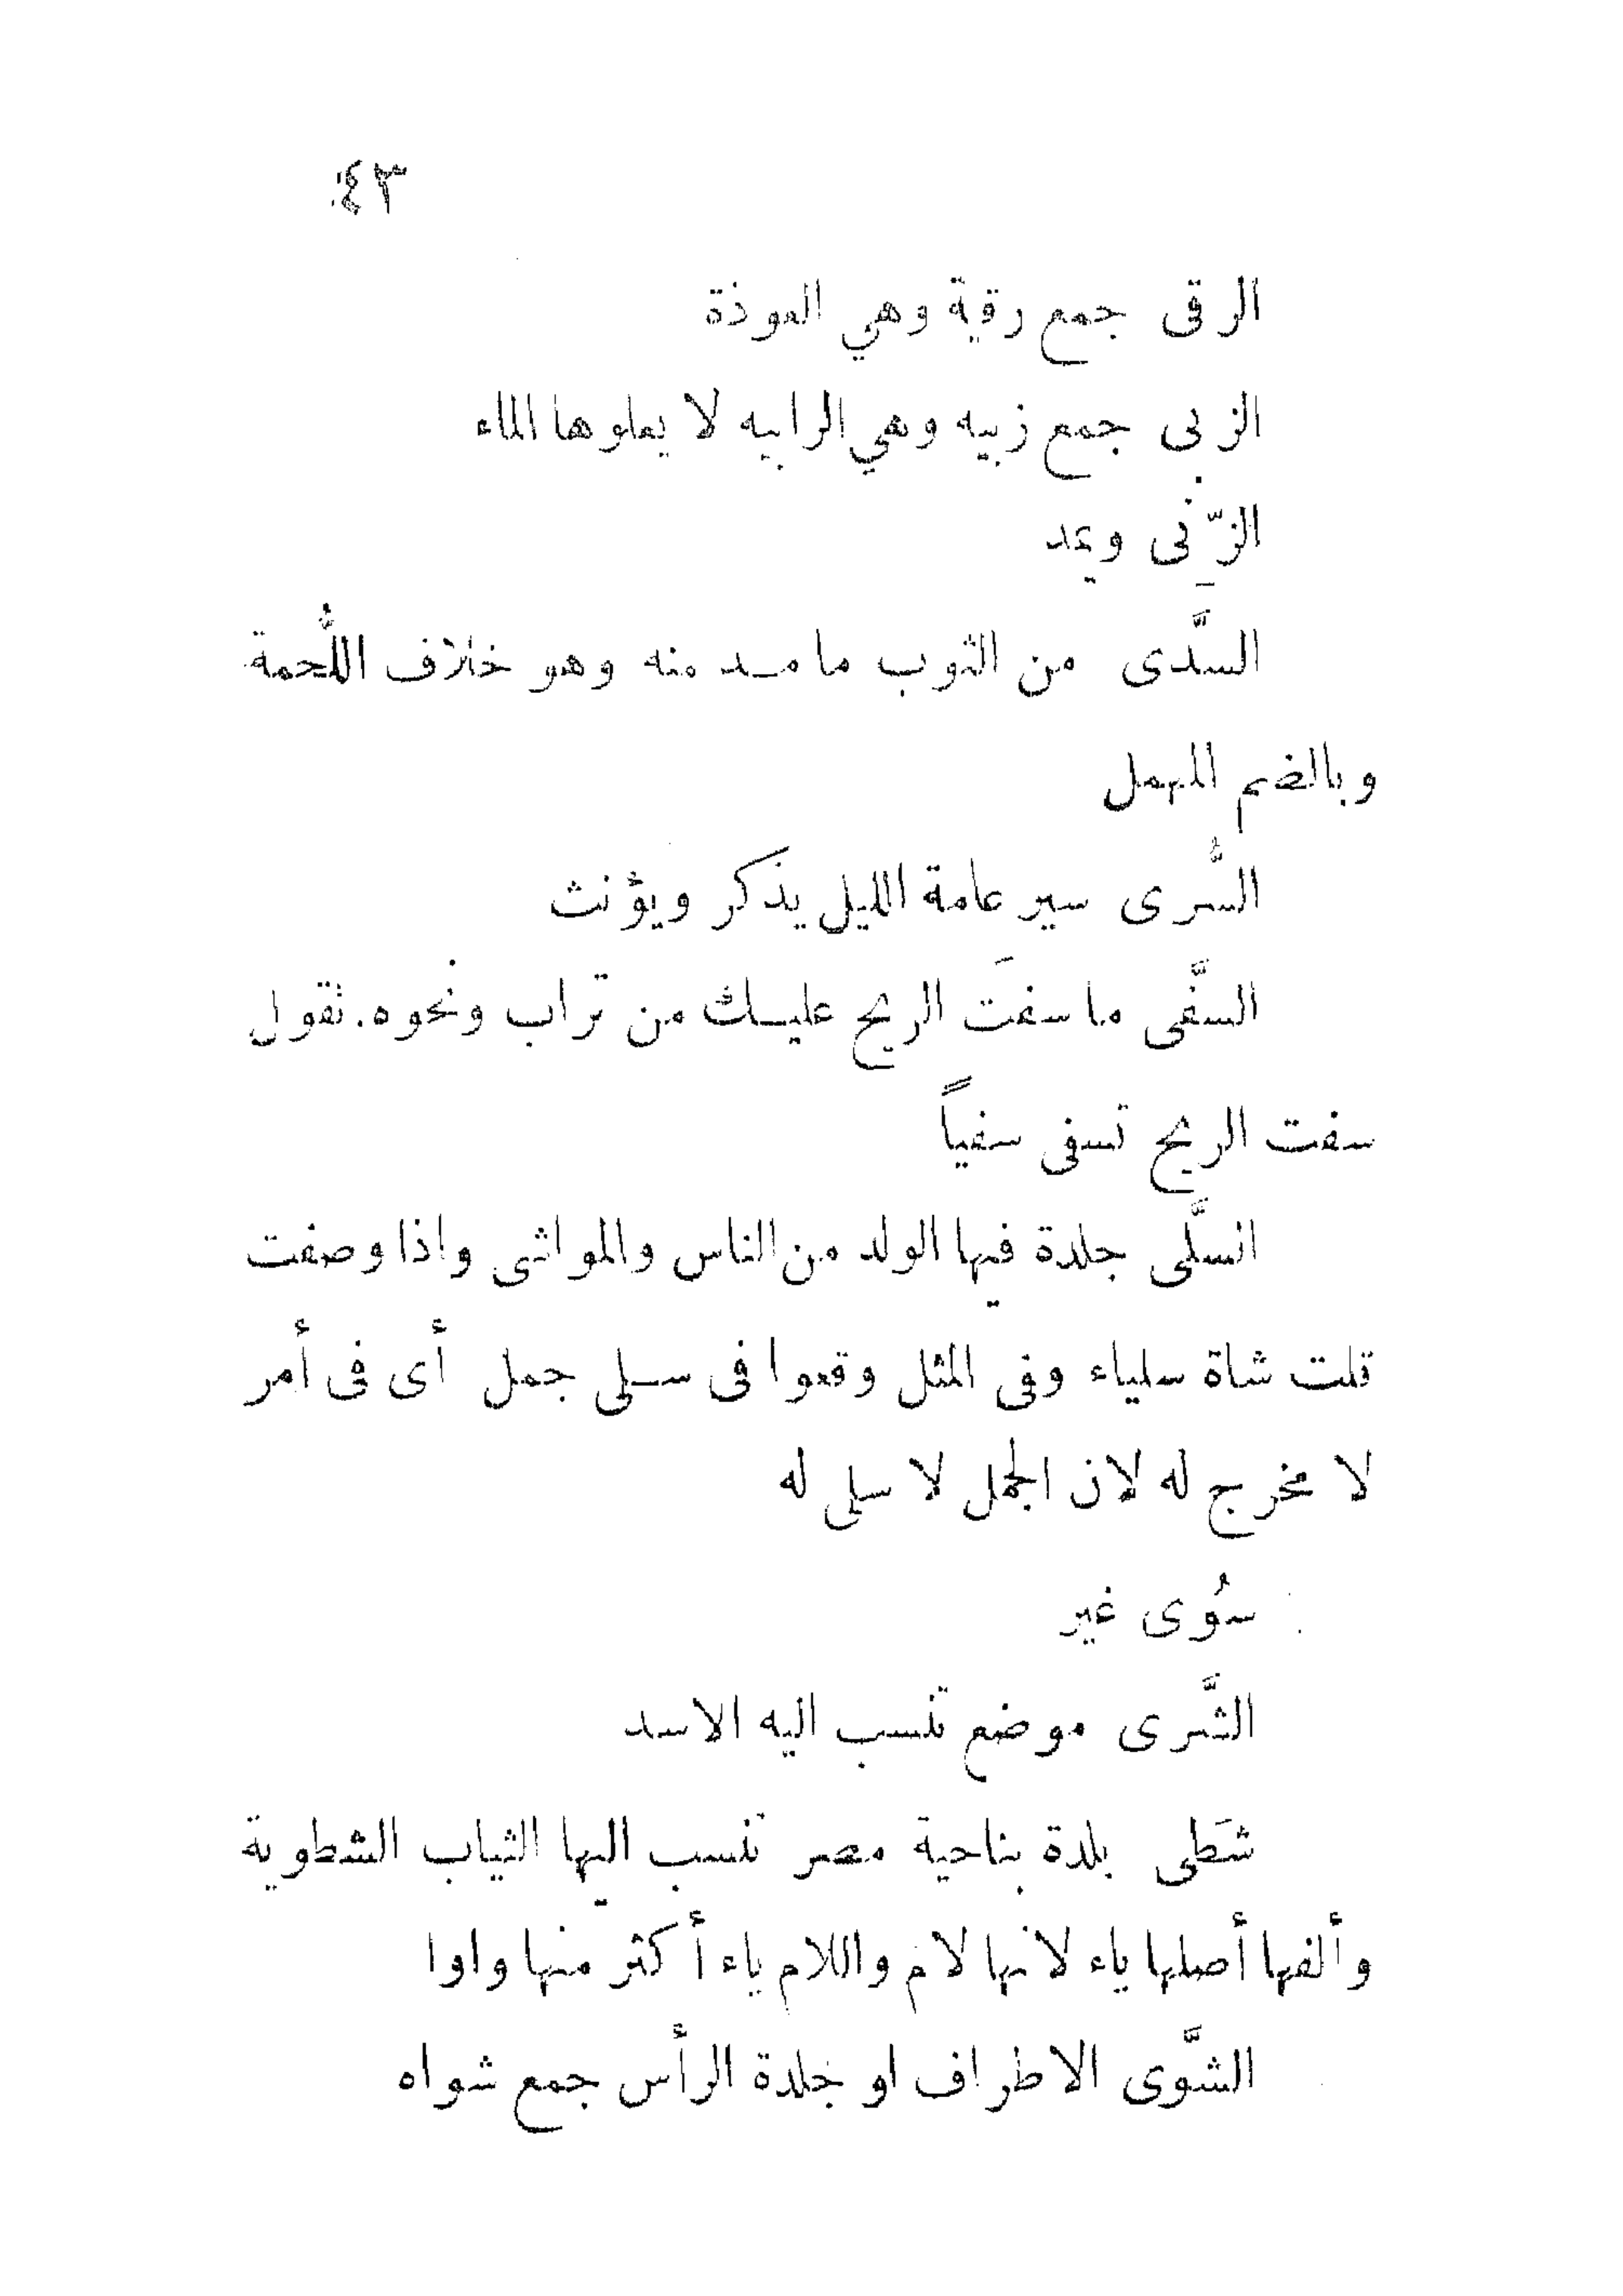 ٤٣
الرقى جمع رقية وهي العوذة
الزبى جمع زبيه وهي الرابيه لا يعلوها الماء
الزّنى ويمد
السَّدى من الثوب ما مد منه وهو خلاف اللُّحمة
وبالضم المهمل
السُّرى سير عامة الليل يذكر ويؤنث
السَّفى ما سفَت الريح عليك من تراب ونحوه. تقول
سفت الريح تسفى سفياً
السَّلى جلدة فيها الولد من الناس والمواشى واذا وصفت
قلت شاة سلياء وفى المثل وقعوا فى سلى جمل أى فى أمر
لا مخرج له لان الجمل لا سلى له
سُوى غير
الشَّرى موضع تنسب اليه الاسد
شَطى بلدة بناحية مصر تنسب اليها الثياب الشطوية
وألفها أصلها ياء لانها لام واللام ياء أكثر منها واوا
الشَّوى الاطراف او جلدة الرأس جمع شواه